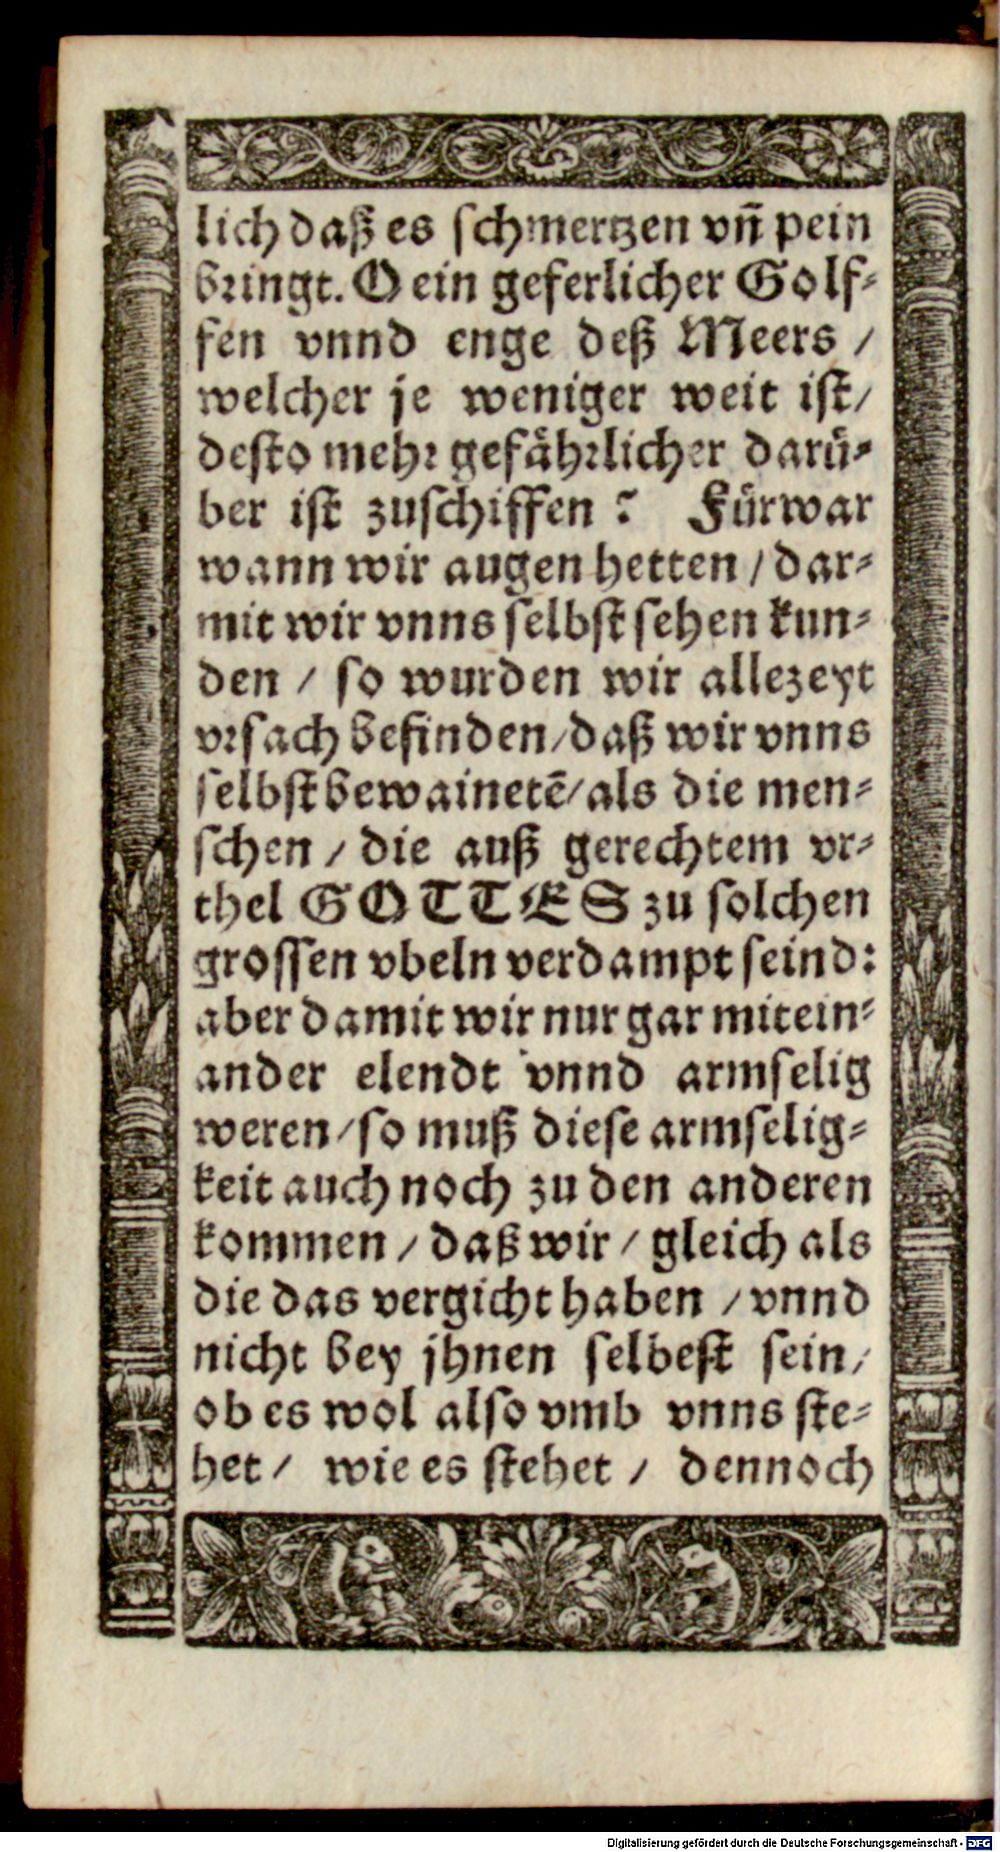 lich daß es schmertzen vñ pein
bringt. O ein geferlicher Golf-
fen vnnd enge deß Meers /
welcher je weniger weit ist/
desto mehr gefährlicher darü-
ber ist zuschiffen? Fürwar
wann wir augen hetten / dar-
mit wir vnns selbst sehen kun-
den / so wurden wir allezeyt
vrsach befinden/daß wir vnns
selbst bewainetẽ/als die men-
schen / die auß gerechtem vr-
thel GOTTES zu solchen
grossen vbeln verdampt seind:
aber damit wir nur gar mitein-
ander elendt vnnd armselig
weren/so muß diese armselig-
keit auch noch zu den anderen
kommen / daß wir / gleich als
die das vergicht haben / vnnd
nicht bey jhnen selbest sein/
ob es wol also vmb vnns ste-
het / wie es stehet / dennoch
Digitalisierung gefördert durch die Deutsche Forschungsgemeinschaft - DFG